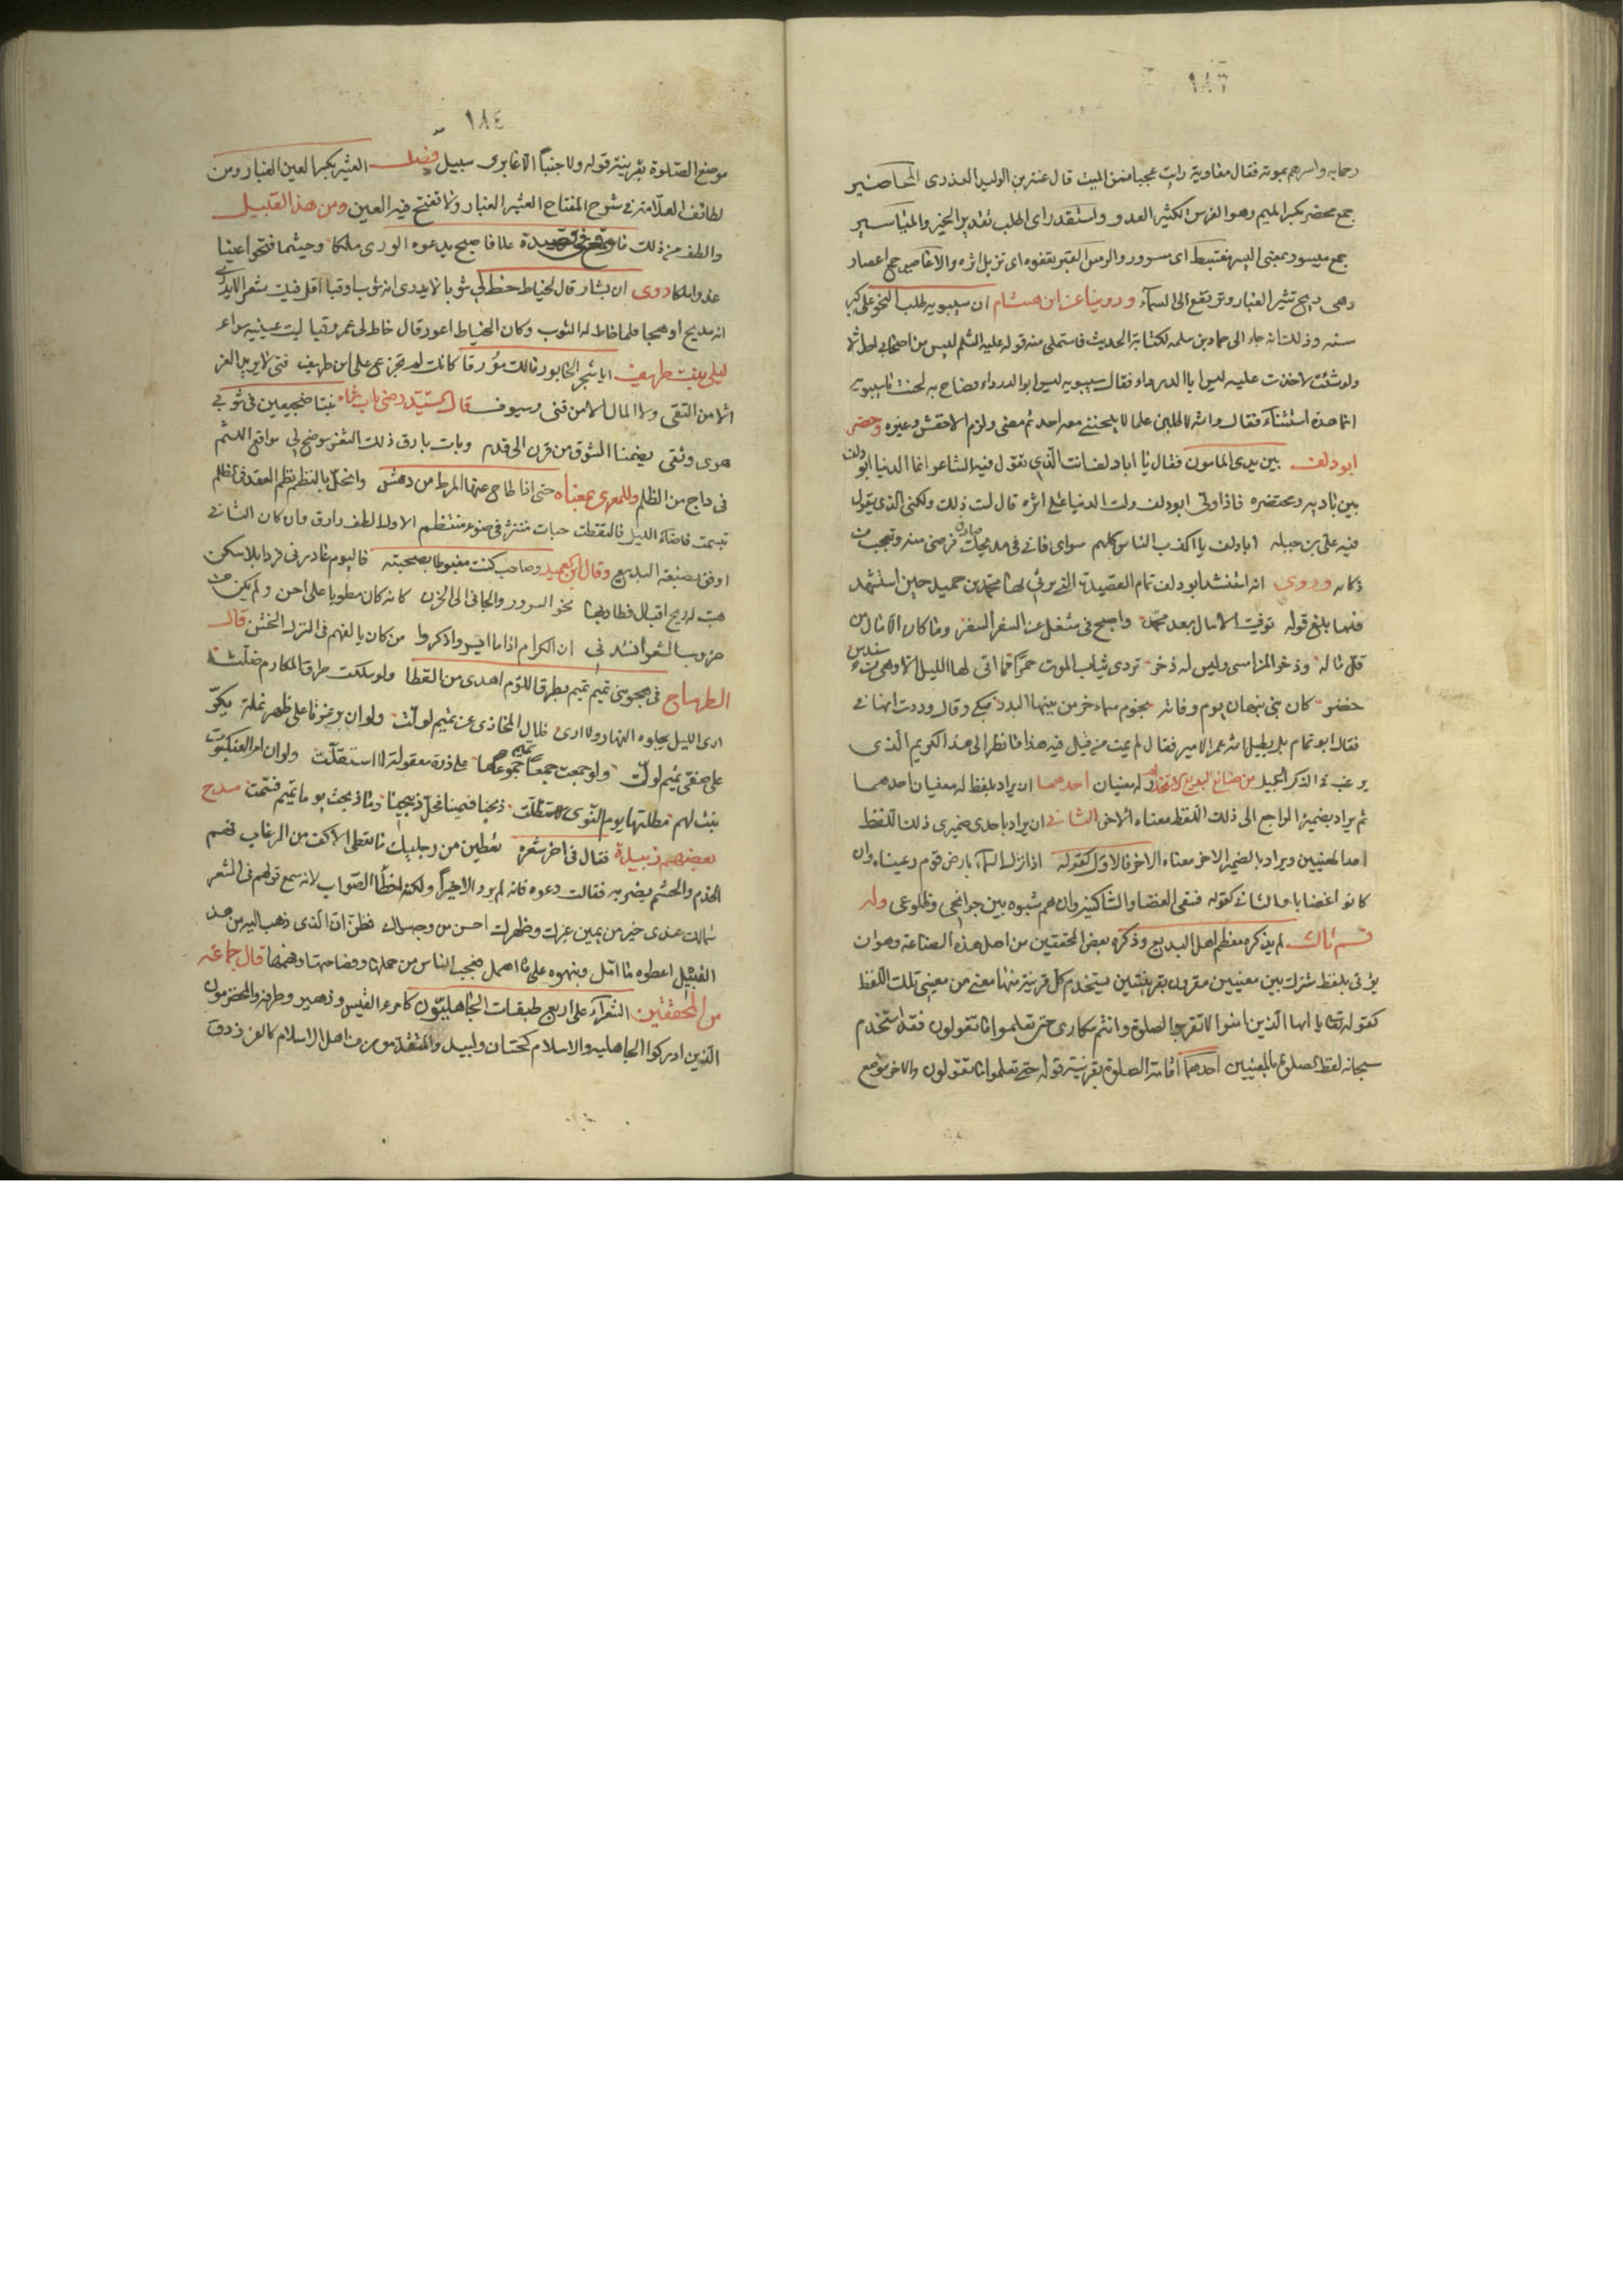 ١٨٣
رحابه واسرهم بموته فقال معاوية رايت عجبا فمن الميت قال عنتر بن الوليد العذرى المحاضير
جمع محضر بكسر الميم وهو الفرس الكثير العدو واستقدر اى اطلب تقدير الخير والمياسير
جمع ميسور بمعنى اليسر مغتبط اى مسرور والرمس القبر يعفوه اى تزيل اثره والاعاصير جمع اعصار
وهى ريح تثير الغبار وترتفع الى السماء وروينا عن ابن هشام ان سيبويه طلب النحو على كبر
سنه وذلك انه جاء الى حماد بن سلمه لكتابة الحديث فاستملى منه قوله عليه السلم ليس من اصحابى احد الا
ولو شئت لاخذت عليه ليس ابا الدرداء فقال سيبويه ليس ابو الدرداء فصاح به لحنت يا سيبويه
انما هذه استثناء فقال والله لاطلبن علما لا يلحننى معه احد ثم مضى ولزم الاخفش وغيره وحضر
ابو دلف بين يدى المامون فقال يا ابا دلف انت الذى تقول فيه الشاعر انما الدنيا ابو دلف
بين باديه ومحتضره فاذا ولى ابو دلف ولت الدنيا على اثره قال لست ذلك ولكنى الذى يقول
فيه على بن جبله ابا دلف يا اكذب الناس كلهم سواى فانى فى مديحك صادق فرضى منه وتعجب من
ذكائه وروى انه استنشد ابو دلف تمام القصيدة التى يرثى بها محمد بن حميد حين استشهد
فلما بلغ قوله توفيت الامال بعد محمد واصبح فى شغل عن السفر السفر وما كان الا مال من
قل ماله وذخرا لمن امسى وليس له ذخر تردى ثياب الموت حمرا فما اتى لها الليل الا وهى من سندس
خضر كان بنى نبهان يوم وفاته نجوم سماء خر من بينها البدر فبكى وقال وددت انها فى
فقال ابو تمام بل يطيل الله عمر الامير فقال لم يمت من قيل فيه هذا فانظر الى هذا الكريم الذى
يرغب فى الذكر الجميل من صنائع البديع الاستخدام وله معنيان احدهما ان يراد بلفظ له معنيان احدهما
ثم يراد بضميره الراجع الى ذلك اللفظ معناه الاخر الثانى ان يراد باحدى ضميرى ذلك اللفظ
احد المعنيين ويراد بالضمير الاخر معناه الاخر فالاول كقوله اذا نزل السماء بارض قوم رعيناه وان
كانوا غضابا والثانى كقوله فسقى الغضا والساكنيه وان هم شبوه بين جوانحى وضلوعى وله
قسم ثالث لم يذكره معظم اهل البديع وذكره بعض المحققين من اهل هذه الصناعة وهو ان
يؤتى بلفظ مشترك بين معنيين مقرون بقرينتين يستخدم كل قرينة منها معنى من معنيى تلك اللفظ
كقوله تعالى يا ايها الذين امنوا لا تقربوا الصلوة وانتم سكارى حتى تعلموا ما تقولون فقد استخدم
سبحانه لفظ الصلوة بالمعنيين احدهما اقامة الصلوة بقرينة قوله حتى تعلموا ما تقولون والاخر موضع
١٨٤
موضع الصلوة بقرينة قوله ولا جنبا الا عابرى سبيل فصل العثير بكسر العين الغبار ومن
لطائف العلامة فى شرح المفتاح العثير الغبار ولا تفتح فيه العين ومن هذا القبيل
والطف من ذلك ما وقع فى قصيدة علا فاصبح يدعوه الورى ملكا وحيثما فتحوا عينا
غدا ملكا روى ان بشار قال لخياط خط لى ثوبا لا يدرى انه ثوب او قبا اقل فيك شعرا لا يدرى
انه مديح او هجا فلما خاط له الثوب وكان الخياط اعور قال خاط لى عمرو قبا ليت عينيه سواء
ليلى بنت طريف ايا شجر الخابور مالك مورقا كانك لم تجزع على ابن طريف فتى لا يريد العز
الا من التقى ولا المال الا من قنى وسيوف قال السيد رضى بتنا ضجيعين فى ثوبى
هوى وتقى يضمنا الشوق من قرن الى قدم وبات بارق ذلك الثغر يوضح لى مواقع اللثم
فى داج من الظلم وللمعرى بمعناه حتى اذا طاح عنها المرط من دهش وانحل بالنظم نظم العقد فى الظلم
تبسمت فاضاء الليل فالتقطت حبات منتثر فى ضوء منتظم الاول الطف وارق وان كان الثانى
اوفق بصنعة البديع وقال ابن العميد وصاحب كنت مغبوطا بصحبته فاليوم غادرنى فردا بلا سكن
هبت له ريح اقبال فطار بها نحو السرور والجانى الى الحزن كانه كان مطويا على احن ولم يكن من
ضروب الشعر انشدنى ان الكرام اذا ما ايسروا ذكروا من كان يالفهم فى المنزل الخشن قال
الطرماح فى هجو بنى تميم تميم بطرق اللؤم اهدى من القطا ولو سلكت طرق المكارم ضلت
ارى الليل يجلوه النهار ولا ارى خلال المخازى عن تميم تولت ولو ان برغوثا على ظهر نملة يكر
على صفى تميم لولت ولو جمعت جمعا تميم جموعها على ذرة معقولة لاستقلت ولو ان ام العنكبوت
بنت لهم مظلتها يوم الندى لاستظلت ذبحنا فسمينا فحل ذبيحنا وما ذبحت يوما تميم فسمت مدح
بعضهم زبيدة فقال فى اخر شعره تعطين من رجليك ما تعطى الاكف من الرغاب فهم
الخدم والحشم بضربه فقالت دعوه فانه لم يرد الا خيرا ولكنه اخطأ الصواب لانه سمع قولهم فى الشعر
شمالك عندى خير من يمين غيرك وظهرك احسن من وجه سواك فظن ان الذى ذهب اليه من هذا
القبيل اعطوه ما امل ونبهوه على ما اهمل فعجب الناس من حملها وفصاحتها وفهمها قال جماعة
من المحققين الشعراء على اربع طبقات الجاهليون كامرء القيس وزهير وطرفة والمخضرمون
الذين ادركوا الجاهليه والاسلام كحسان ولبيد والمتقدمون من اهل الاسلام كالفرزدق